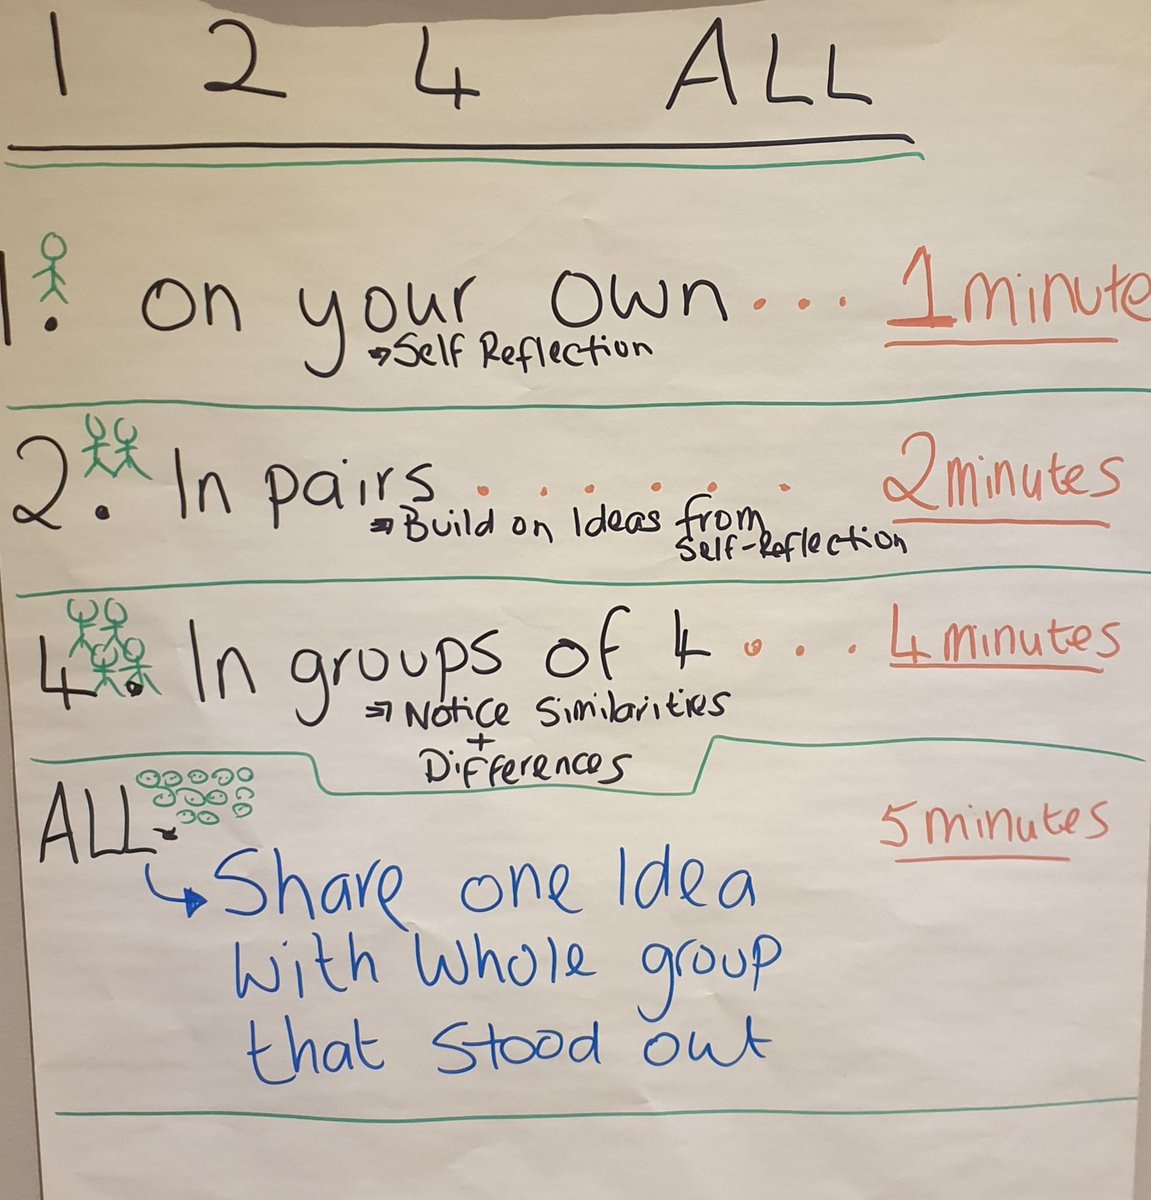 1 2 4 ALL
1. On your own... 1 minute
⇒ Self Reflection
2. In pairs...... 2 minutes
⇒ Build on Ideas from
Self-Reflection
4. In groups of 4 .... 4 minutes
⇒ Notice Similarities
+
Differences
ALL. 5 minutes
↳ Share one Idea
with whole group
that stood out